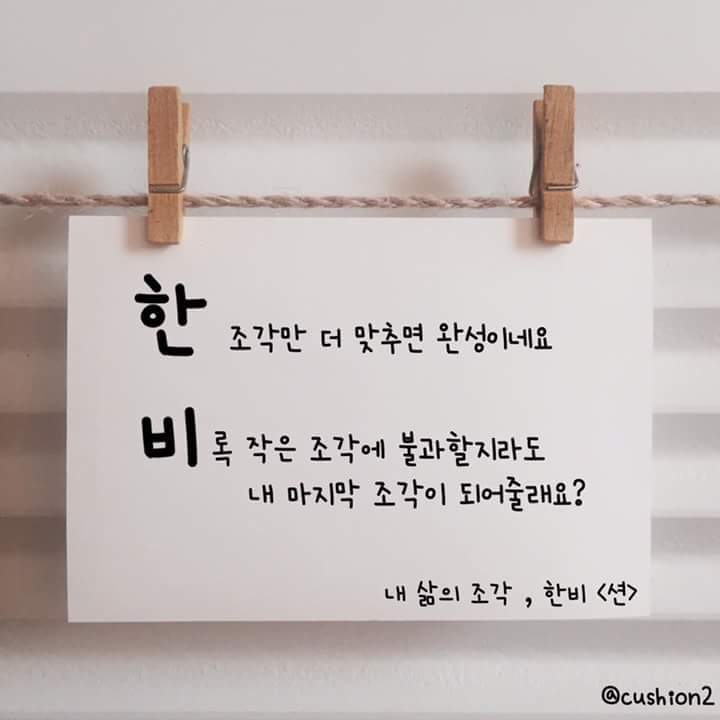 한 조각만 더 맞추면 완성이네요
비록 작은 조각에 불과할지라도
내 마지막 조각이 되어줄래요?
내 삶의 조각 , 한비 <션>
@cushion2